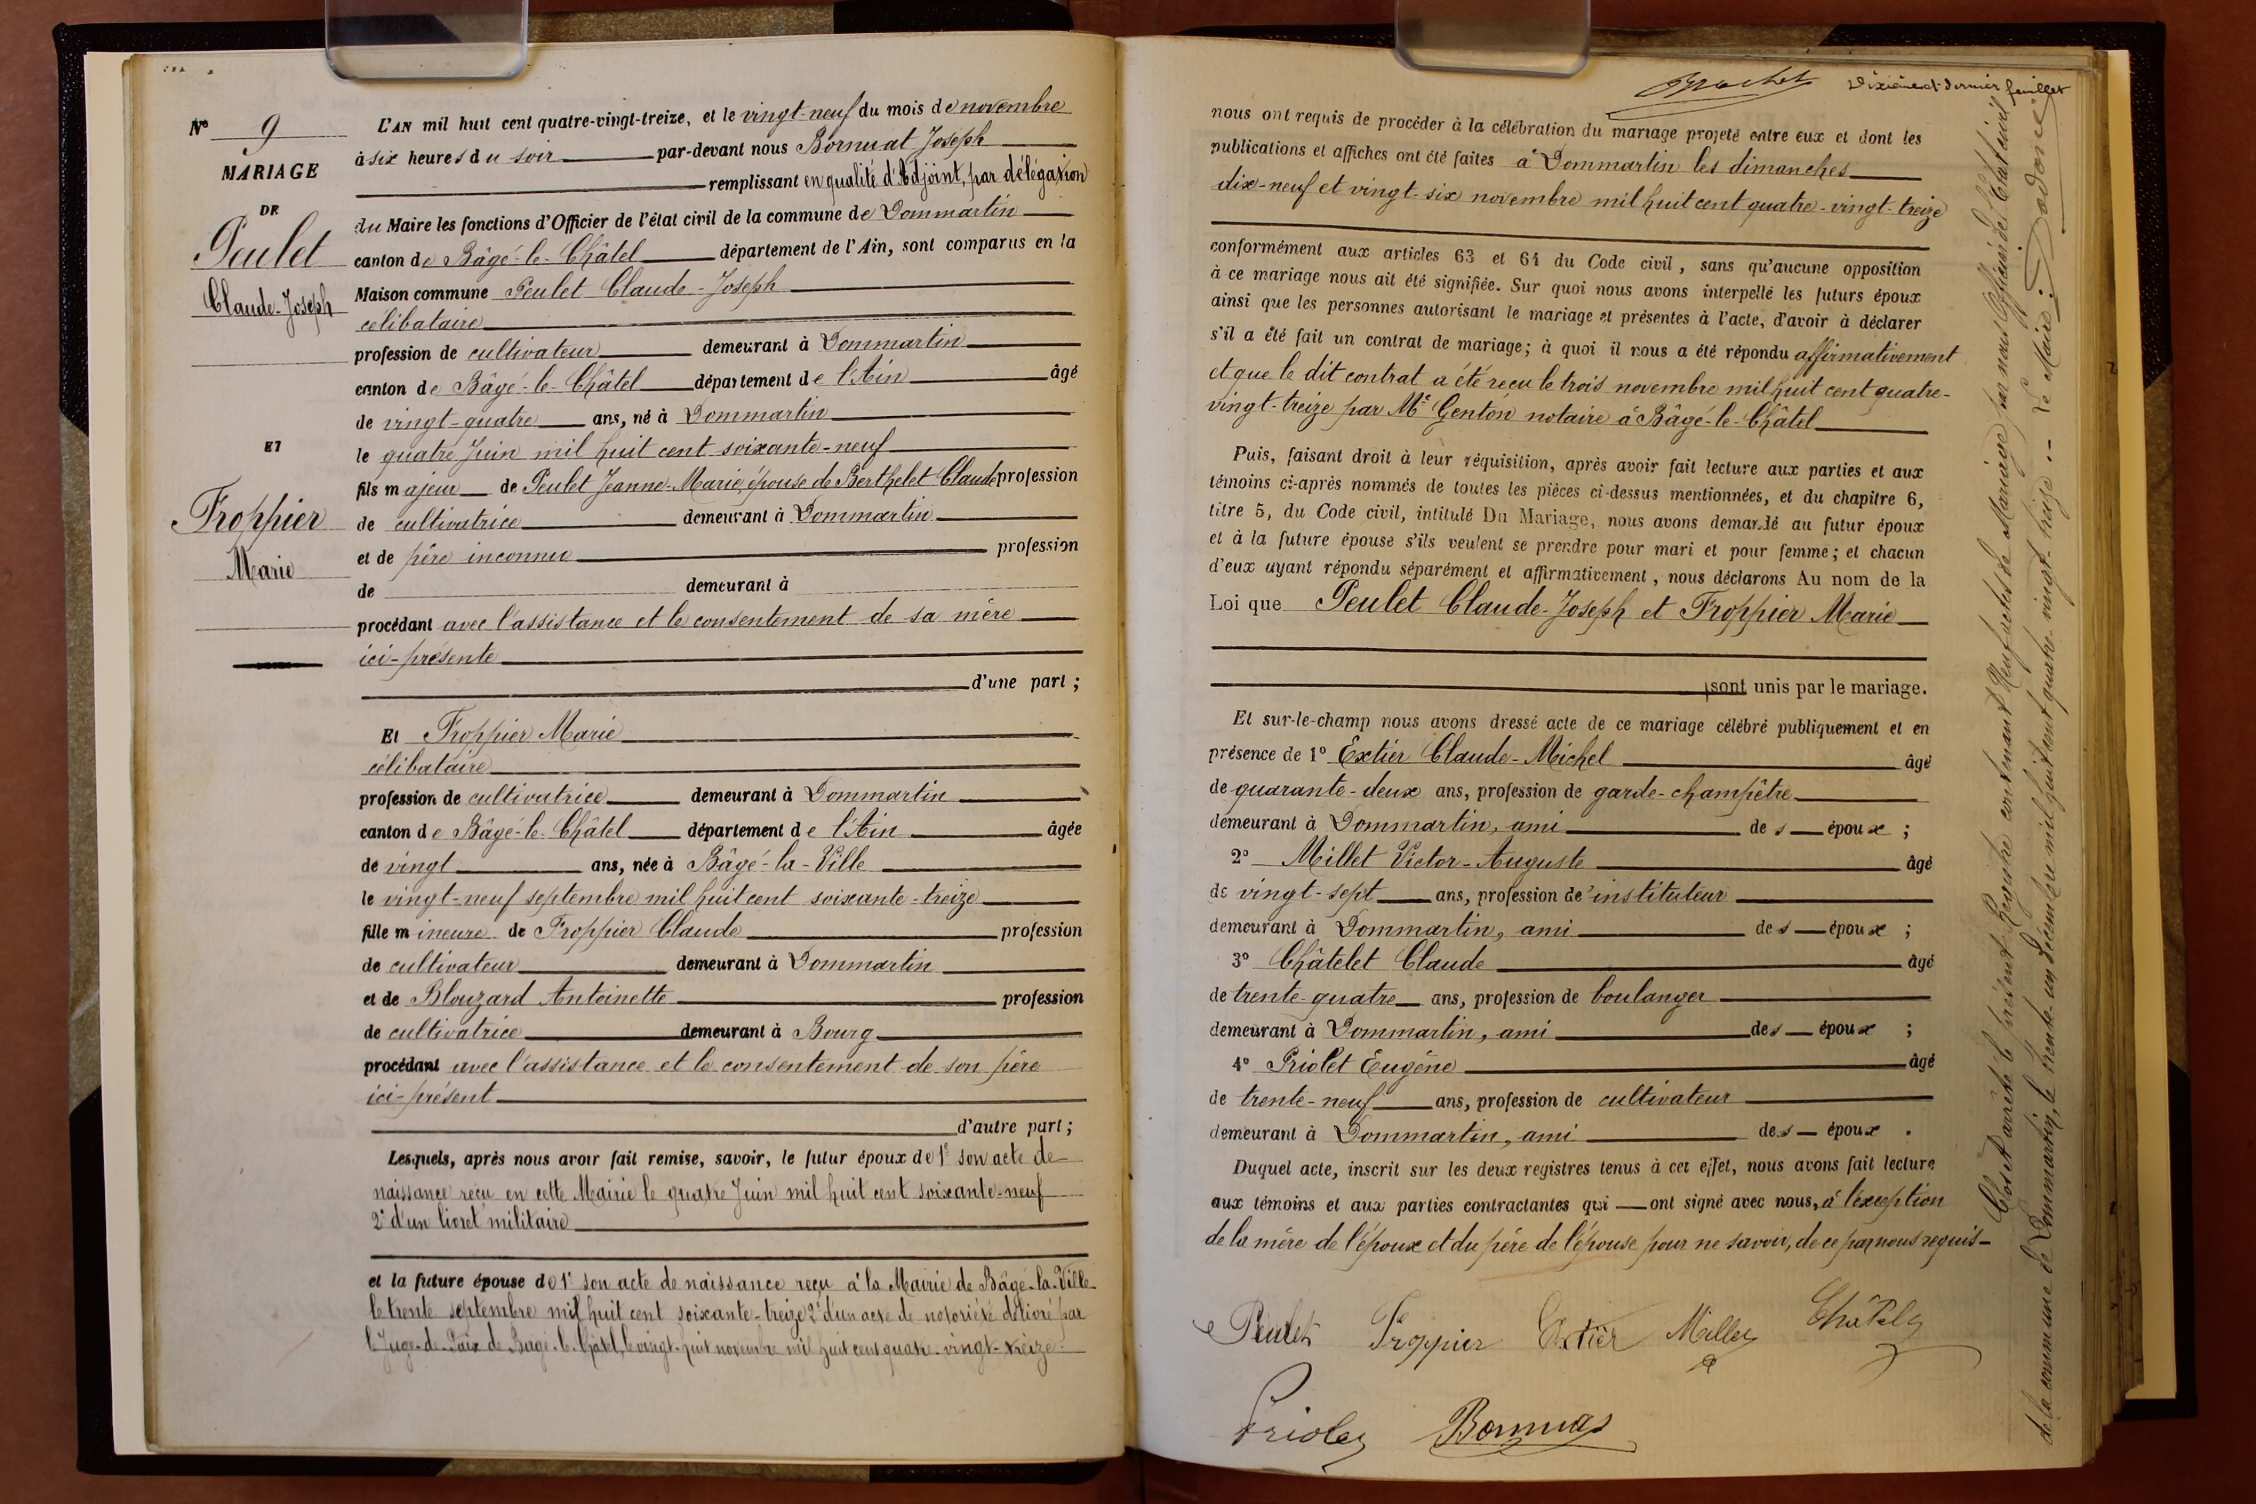 N° 9
MARIAGE
DE
Peulet
Claude-Joseph
ET
Froppier
Marie
L'AN mil huit cent quatre-vingt-treize, et le vingt-neuf du mois de novembre
à six heures du soir par-devant nous Bornuat Joseph
remplissant en qualité d'Adjoint, par délégation
du Maire les fonctions d'Officier de l'état civil de la commune de Dommartin
canton de Bâgé-le-Châtel département de l'Ain, sont comparus en la
Maison commune Peulet Claude-Joseph
célibataire
profession de cultivateur demeurant à Dommartin
canton de Bâgé-le-Châtel département de l'Ain âgé
de vingt-quatre ans, né à Dommartin
le quatre Juin mil huit cent soixante-neuf
fils majeur de Peulet Jeanne-Marie, épouse de Berthelet Claude profession
de cultivatrice demeurant à Dommartin
et de père inconnu profession
de demeurant à
procédant avec l'assistance et le consentement de sa mère
ici-présente
d'une part;
Et Froppier Marie
célibataire
profession de cultivatrice demeurant à Dommartin
canton de Bâgé-le-Châtel département de l'Ain âgée
de vingt ans, née à Bâgé-la-Ville
le vingt-neuf septembre mil huit cent soixante-treize
fille mineure de Froppier Claude profession
de cultivateur demeurant à Dommartin
et de Blouzard Antoinette profession
de cultivatrice demeurant à Bourg
procédant avec l'assistance et le consentement de son père
ici-présent
d'autre part;
Lesquels, après nous avoir fait remise, savoir, le futur époux de 1° son acte de
naissance reçu en cette Mairie le quatre Juin mil huit cent soixante-neuf
2° d'un livret militaire
et la future épouse de 1° son acte de naissance reçu à la Mairie de Bâgé-la-Ville
le trente septembre mil huit cent soixante-treize 2° d'un acte de notoriété délivré par
le Juge-de-Paix de Bagé-le-Châtel, le vingt-huit novembre mil huit cent quatre-vingt-treize
Dixième et dernier feuillet
nous ont requis de procéder à la célébration du mariage projeté entre eux et dont les
publications et affiches ont été faites à Dommartin les dimanches
dix-neuf et vingt-six novembre mil huit cent quatre-vingt-treize
conformément aux articles 63 et 64 du Code civil, sans qu'aucune opposition
à ce mariage nous ait été signifiée. Sur quoi nous avons interpellé les futurs époux
ainsi que les personnes autorisant le mariage et présentes à l'acte, d'avoir à déclarer
s'il a été fait un contrat de mariage; à quoi il nous a été répondu affirmativement
et que le dit contrat a été reçu le trois novembre mil huit cent quatre-
vingt-treize par Me Genton notaire à Bâgé-le-Châtel
Puis, faisant droit à leur réquisition, après avoir fait lecture aux parties et aux
témoins ci-après nommés de toutes les pièces ci-dessus mentionnées, et du chapitre 6,
titre 5, du Code civil, intitulé Du Mariage, nous avons demandé au futur époux
et à la future épouse s'ils veulent se prendre pour mari et pour femme; et chacun
d'eux ayant répondu séparément et affirmativement, nous déclarons Au nom de la
Loi que Peulet Claude-Joseph et Froppier Marie
sont unis par le mariage.
Et sur-le-champ nous avons dressé acte de ce mariage célébré publiquement et en
présence de 1° Extier Claude-Michel âgé
de quarante-deux ans, profession de garde-champêtre
demeurant à Dommartin, ami des époux;
2° Millet Victor-Auguste âgé
de vingt-sept ans, profession de instituteur
demeurant à Dommartin, ami des époux;
3° Châtelet Claude âgé
de trente-quatre ans, profession de boulanger
demeurant à Dommartin, ami des époux;
4° Priolet Eugène âgé
de trente-neuf ans, profession de cultivateur
demeurant à Dommartin, ami des époux.
Duquel acte, inscrit sur les deux registres tenus à cet effet, nous avons fait lecture
aux témoins et aux parties contractantes qui ont signé avec nous, à l'exception
de la mère de l'époux et du père de l'épouse pour ne savoir, de ce par nous requis
Peulet Froppier Extier Millet Châtelet
Priolet Bornuat
Clos et arrêté le présent Registre contenant Neuf actes de Mariage par nous Officier de l'état civil
de la commune de Dommartin, le trente un Décembre mil huit cent quatre-vingt-treize. Le Maire: